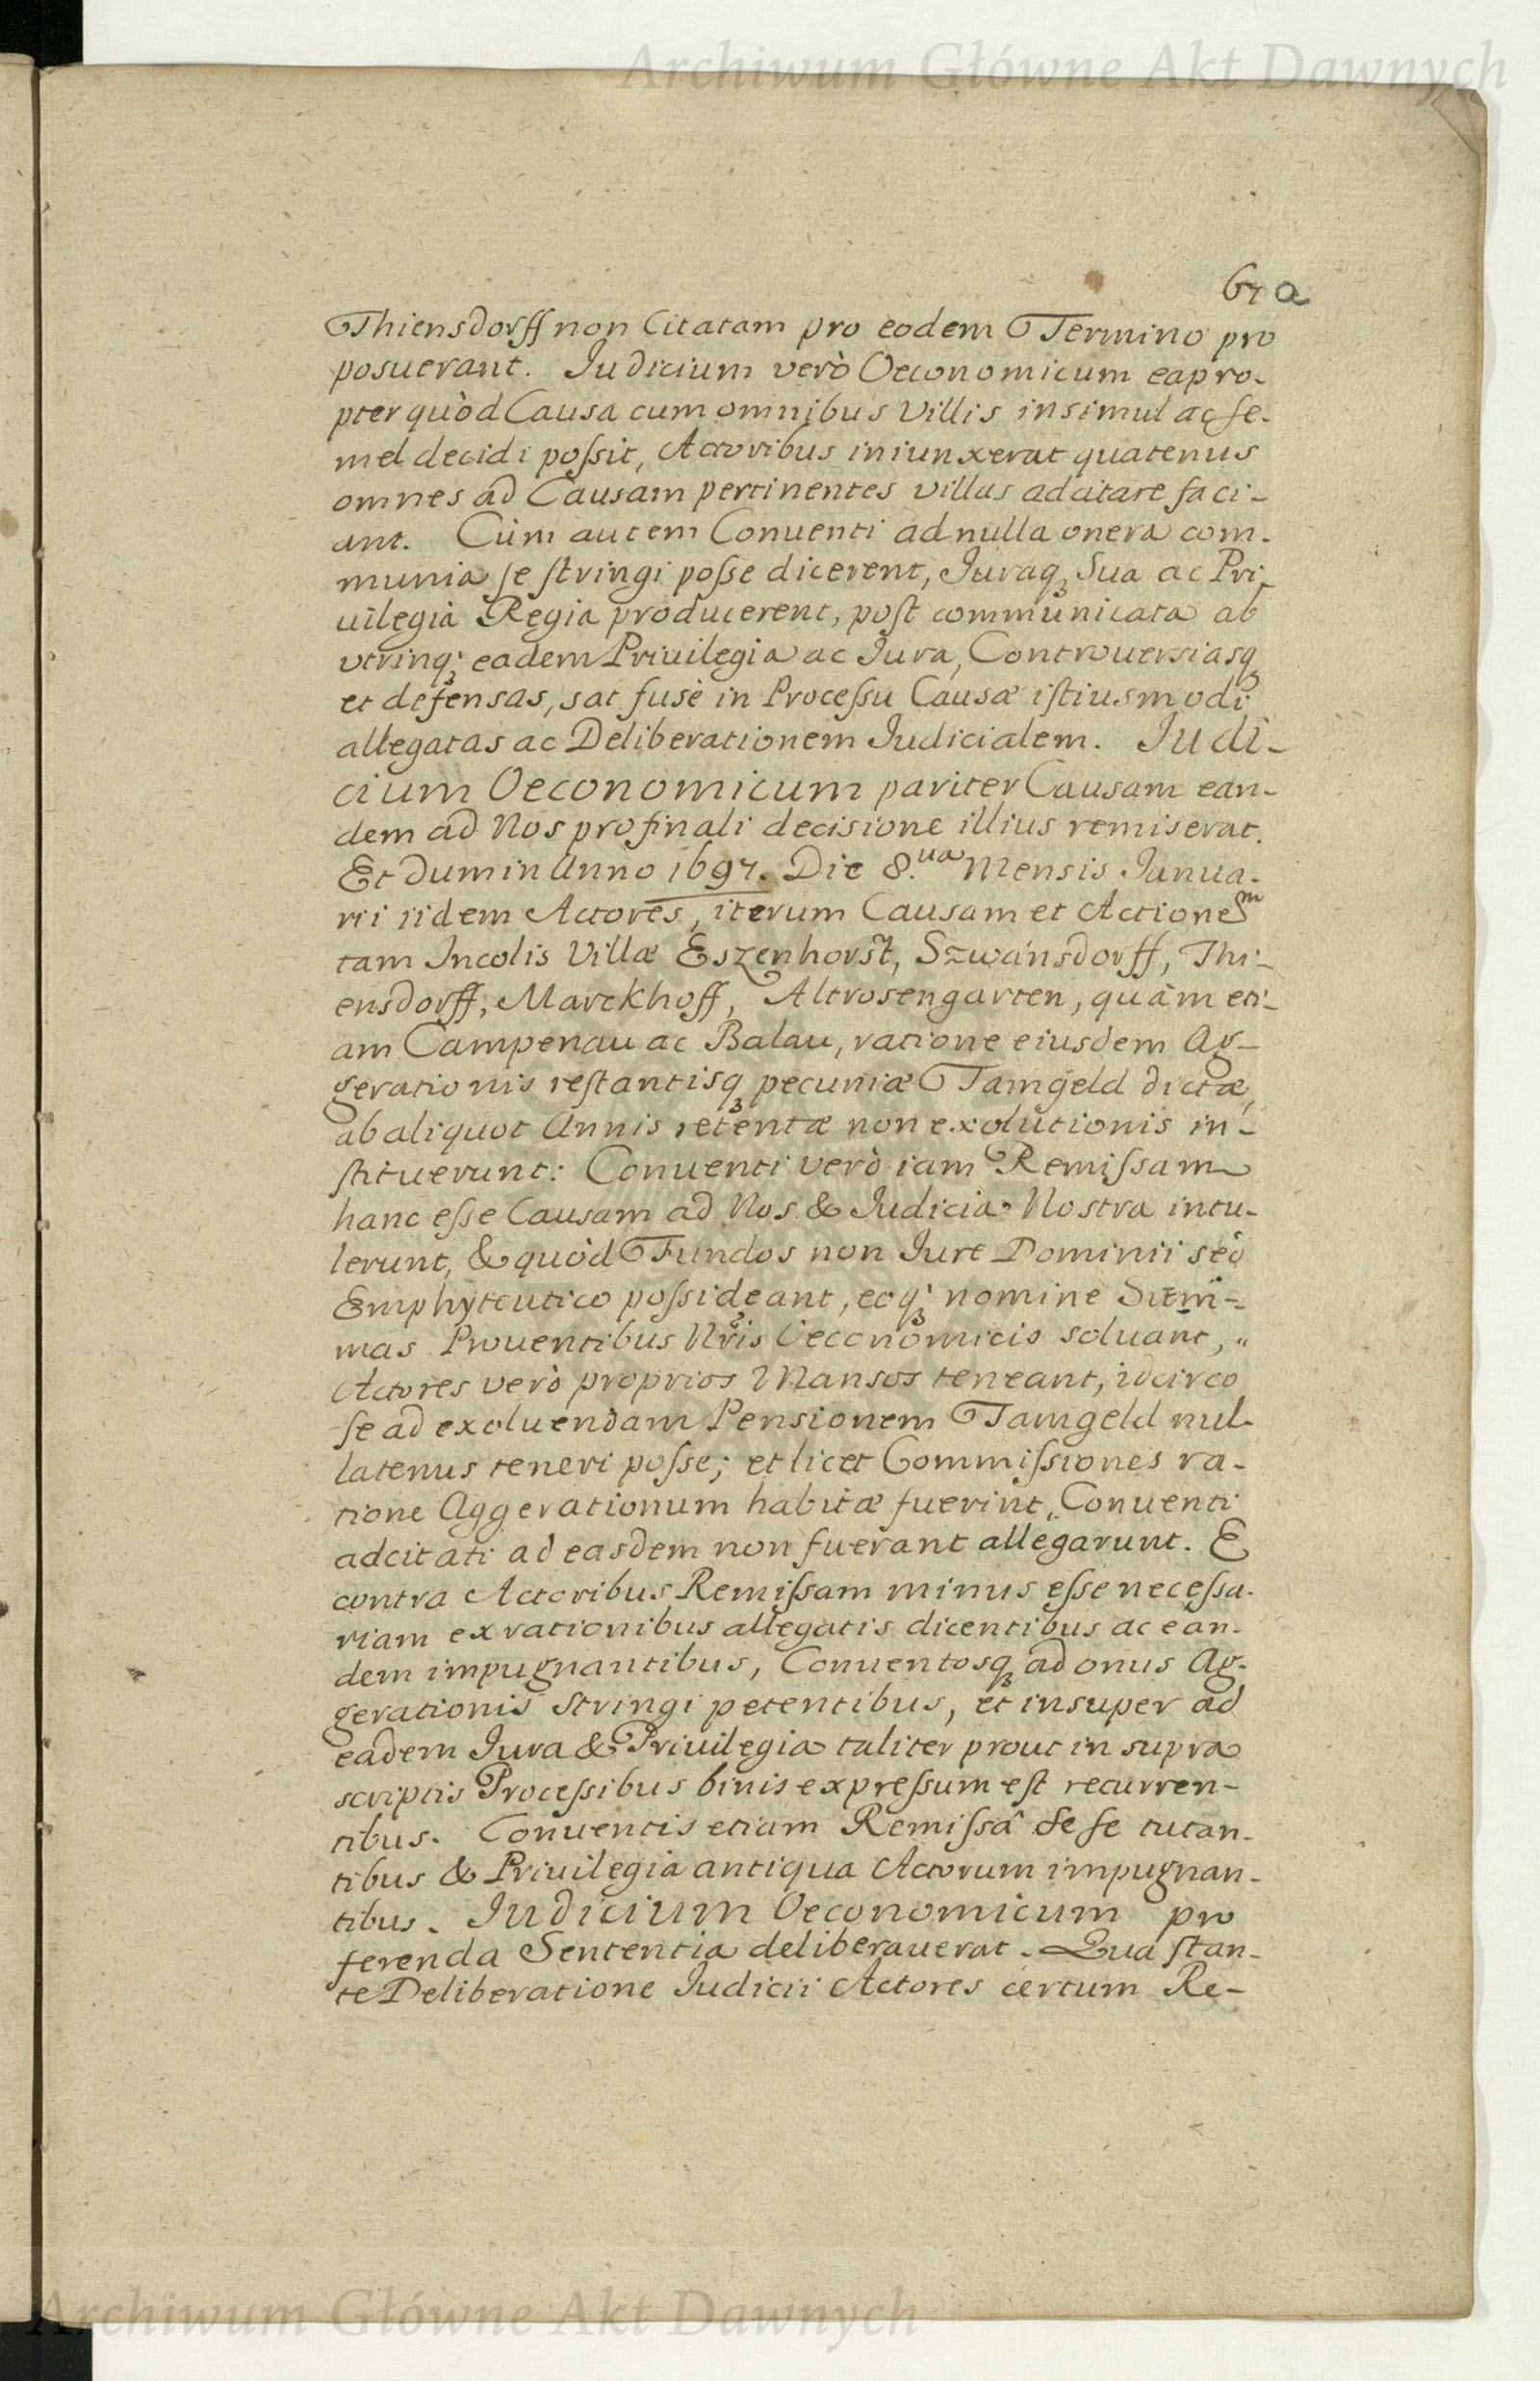 Archiwum Główne Akt Dawnych
67 a
Thiensdorff non Citatam pro eodem Termino pro
posuerant. Iudicium verò Oeconomicum eapro-
pter quòd Causa cum omnibus Villis insimul ac se-
mel decidi possit, Actoribus iniunxerat quatenus
omnes ad Causam pertinentes villas adcitare faci-
ant. Cùm autem Conuenti ad nulla onera com-
munia se stringi posse dicerent, Iuraq; Sua ac Pri-
uilegia Regia producerent, post communicata ab
vtrinq; eadem Priuilegia ac Iura, Controuersiasq;
et defensas, sat fusè in Processu Causæ istiusmodi
allegatas ac Deliberationem Iudicialem. Iudi-
cium Oeconomicum pariter Causam ean-
dem ad Nos pro finali decisione illius remiserat.
Et dum in Anno 1697. Die 8.ua Mensis Ianua-
rii iidem Actores, iterum Causam et Actionem
tam Incolis Villæ Eszenhorst, Szwansdorff, Thi-
ensdorff, Marckhoff, Altrosengarten, quàm eti-
am Campenau ac Balau, ratione eiusdem Ag-
gerationis restantisq; pecuniæ Tamgeld dictæ,
ab aliquot Annis retentæ non exolutionis in-
stituerunt: Conuenti verò iam Remissam
hanc esse Causam ad Nos & Iudicia Nostra intu-
lerunt, & quòd Fundos non Iure Dominii seò
Emphyteutico possideant, eoq; nomine Sum̄-
mas Prouentibus Nr̃is Oeconomicis soluant, "
Actores verò proprios Mansos teneant, idcirco
se ad exoluendam Pensionem Tamgeld nul-
latenus teneri posse; et licet Commissiones ra-
tione Aggerationum habitæ fuerint, Conuenti
adcitati ad easdem non fuerant allegarunt. E
contra Actoribus Remissam minus esse necessa-
riam ex rationibus allegatis dicentibus ac ean-
dem impugnantibus, Conuentosq; ad onus Ag-
gerationis stringi petentibus, et insuper ad
eadem Iura & Priuilegia taliter prout in supra
scriptis Processibus binis expressum est recurren-
tibus. Conuentis etiam Remissâ sese tutan-
tibus & Priuilegia antiqua Actorum impugnan-
tibus. Iudicium Oeconomicum pro
ferenda Sententia deliberauerat. Qua stan-
te Deliberatione Iudicii Actores certum Re-
Archiwum Główne Akt Dawnych